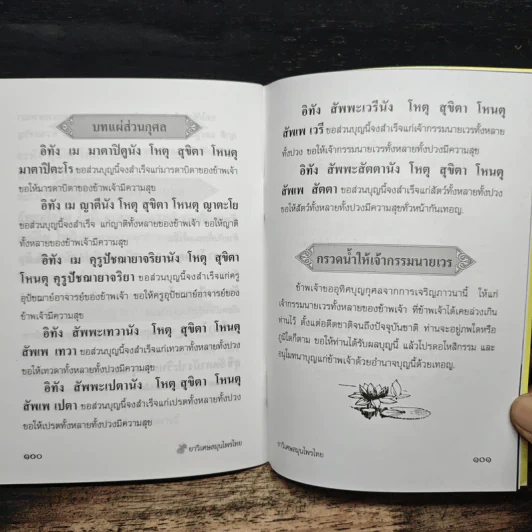 บทแผ่ส่วนกุศล
อิทัง เม มาตาปิตูนัง โหตุ สุขิตา โหนตุ
มาตาปิตะโร ขอส่วนบุญนี้จงสำเร็จแก่มารดาบิดาของข้าพเจ้า
ขอให้มารดาบิดาของข้าพเจ้ามีความสุข
อิทัง เม ญาตีนัง โหตุ สุขิตา โหนตุ ญาตะโย
ขอส่วนบุญนี้จงสำเร็จ แก่ญาติทั้งหลายของข้าพเจ้า ขอให้ญาติ
ทั้งหลายของข้าพเจ้ามีความสุข
อิทัง เม คุรูปัชฌายาจริยานัง โหตุ สุขิตา
โหนตุ คุรูปัชฌายาจริยา ขอส่วนบุญนี้จงสำเร็จแก่ครู
อุปัชฌาย์อาจารย์ของข้าพเจ้า ขอให้ครูอุปัชฌาย์อาจารย์ของ
ข้าพเจ้ามีความสุข
อิทัง สัพพะเทวานัง โหตุ สุขิตา โหนตุ
สัพเพ เทวา ขอส่วนบุญนี้จงสำเร็จแก่เทวดาทั้งหลายทั้งปวง
ขอให้เทวดาทั้งหลายทั้งปวงมีความสุข
อิทัง สัพพะเปตานัง โหตุ สุขิตา โหนตุ
สัพเพ เปตา ขอส่วนบุญนี้จงสำเร็จแก่เปรตทั้งหลายทั้งปวง
ขอให้เปรตทั้งหลายทั้งปวงมีความสุข
๑๐๐
ยาวิเศษสมุนไพรไทย
อิทัง สัพพะเวรีนัง โหตุ สุขิตา โหนตุ
สัพเพ เวรี ขอส่วนบุญนี้จงสำเร็จแก่เจ้ากรรมนายเวรทั้งหลาย
ทั้งปวง ขอให้เจ้ากรรมนายเวรทั้งหลายทั้งปวงมีความสุข
อิทัง สัพพะสัตตานัง โหตุ สุขิตา โหนตุ
สัพเพ สัตตา ขอส่วนบุญนี้จงสำเร็จแก่สัตว์ทั้งหลายทั้งปวง
ขอให้สัตว์ทั้งหลายทั้งปวงมีความสุขทั่วหน้ากันเทอญ
กรวดน้ำให้เจ้ากรรมนายเวร
ข้าพเจ้าขออุทิศบุญกุศลจากการเจริญภาวนานี้ ให้แก่
เจ้ากรรมนายเวรทั้งหลายของข้าพเจ้า ที่ข้าพเจ้าได้เคยล่วงเกิน
ท่านไว้ ตั้งแต่อดีตชาติจนถึงปัจจุบันชาติ ท่านจะอยู่ภพใดหรือ
ภูมิใดก็ตาม ขอให้ท่านได้รับผลบุญนี้ แล้วโปรดอโหสิกรรม และ
อนุโมทนาบุญแก่ข้าพเจ้าด้วยอำนาจบุญนี้ด้วยเทอญ.
ยาวิเศษสมุนไพรไทย
๑๐๑